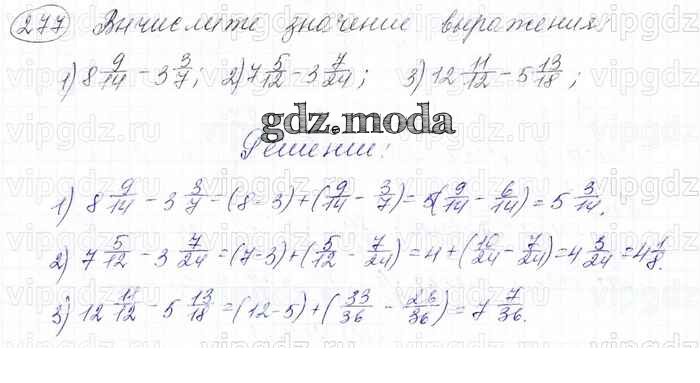 277 Вычислите значение выражения:
1) 8 9/14 - 3 3/7; 2) 7 5/12 - 3 7/24; 3) 12 11/12 - 5 13/18;
gdz.moda
Решение:
1) 8 9/14 - 3 3/7 = (8-3)+(9/14 - 3/7) = 5(9/14 - 6/14) = 5 3/14.
2) 7 5/12 - 3 7/24 = (7-3)+(5/12 - 7/24) = 4+(10/24 - 7/24) = 4 3/24 = 4 1/8.
3) 12 11/12 - 5 13/18 = (12-5)+(33/36 - 26/36) = 7 7/36.